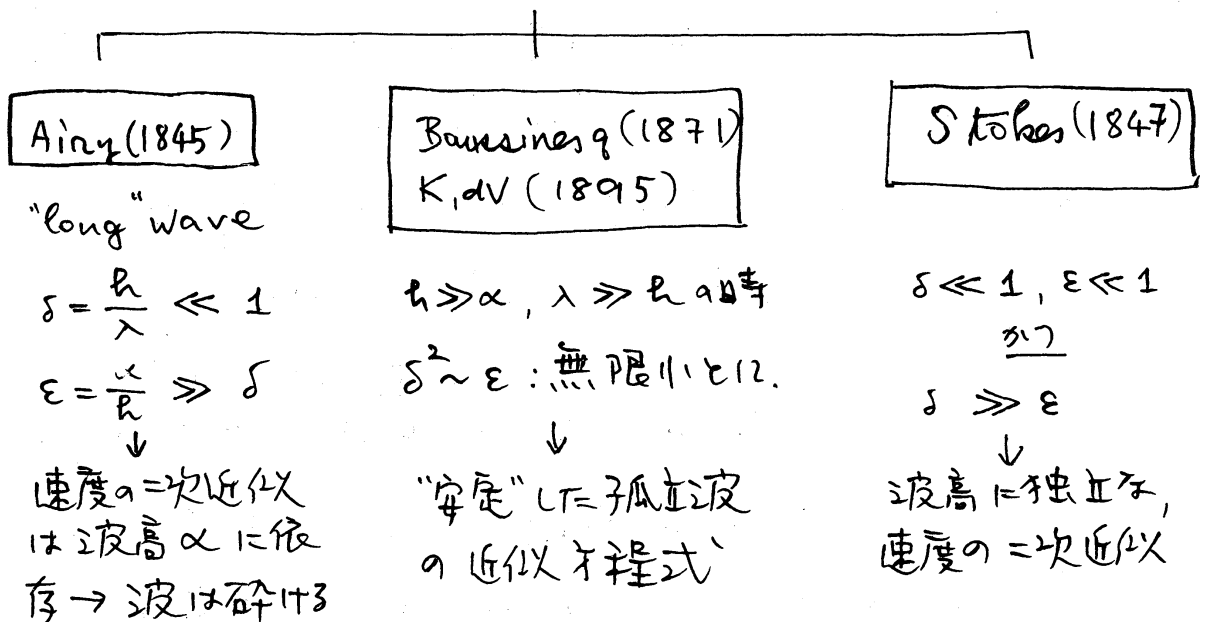 Airy (1845)
"long" wave
δ = h/λ ≪ 1
ε = α/h ≫ δ
↓
速度の二次近似
は波高 α に依
存 → 波は砕ける
Boussinesq (1871)
K,dV (1895)
h ≫ α, λ ≫ h の時
δ² ~ ε : 無限小とに.
↓
"安定" した孤立波
の近似方程式
Stokes (1847)
δ ≪ 1, ε ≪ 1
かつ
δ ≫ ε
↓
波高に独立な,
速度の二次近似